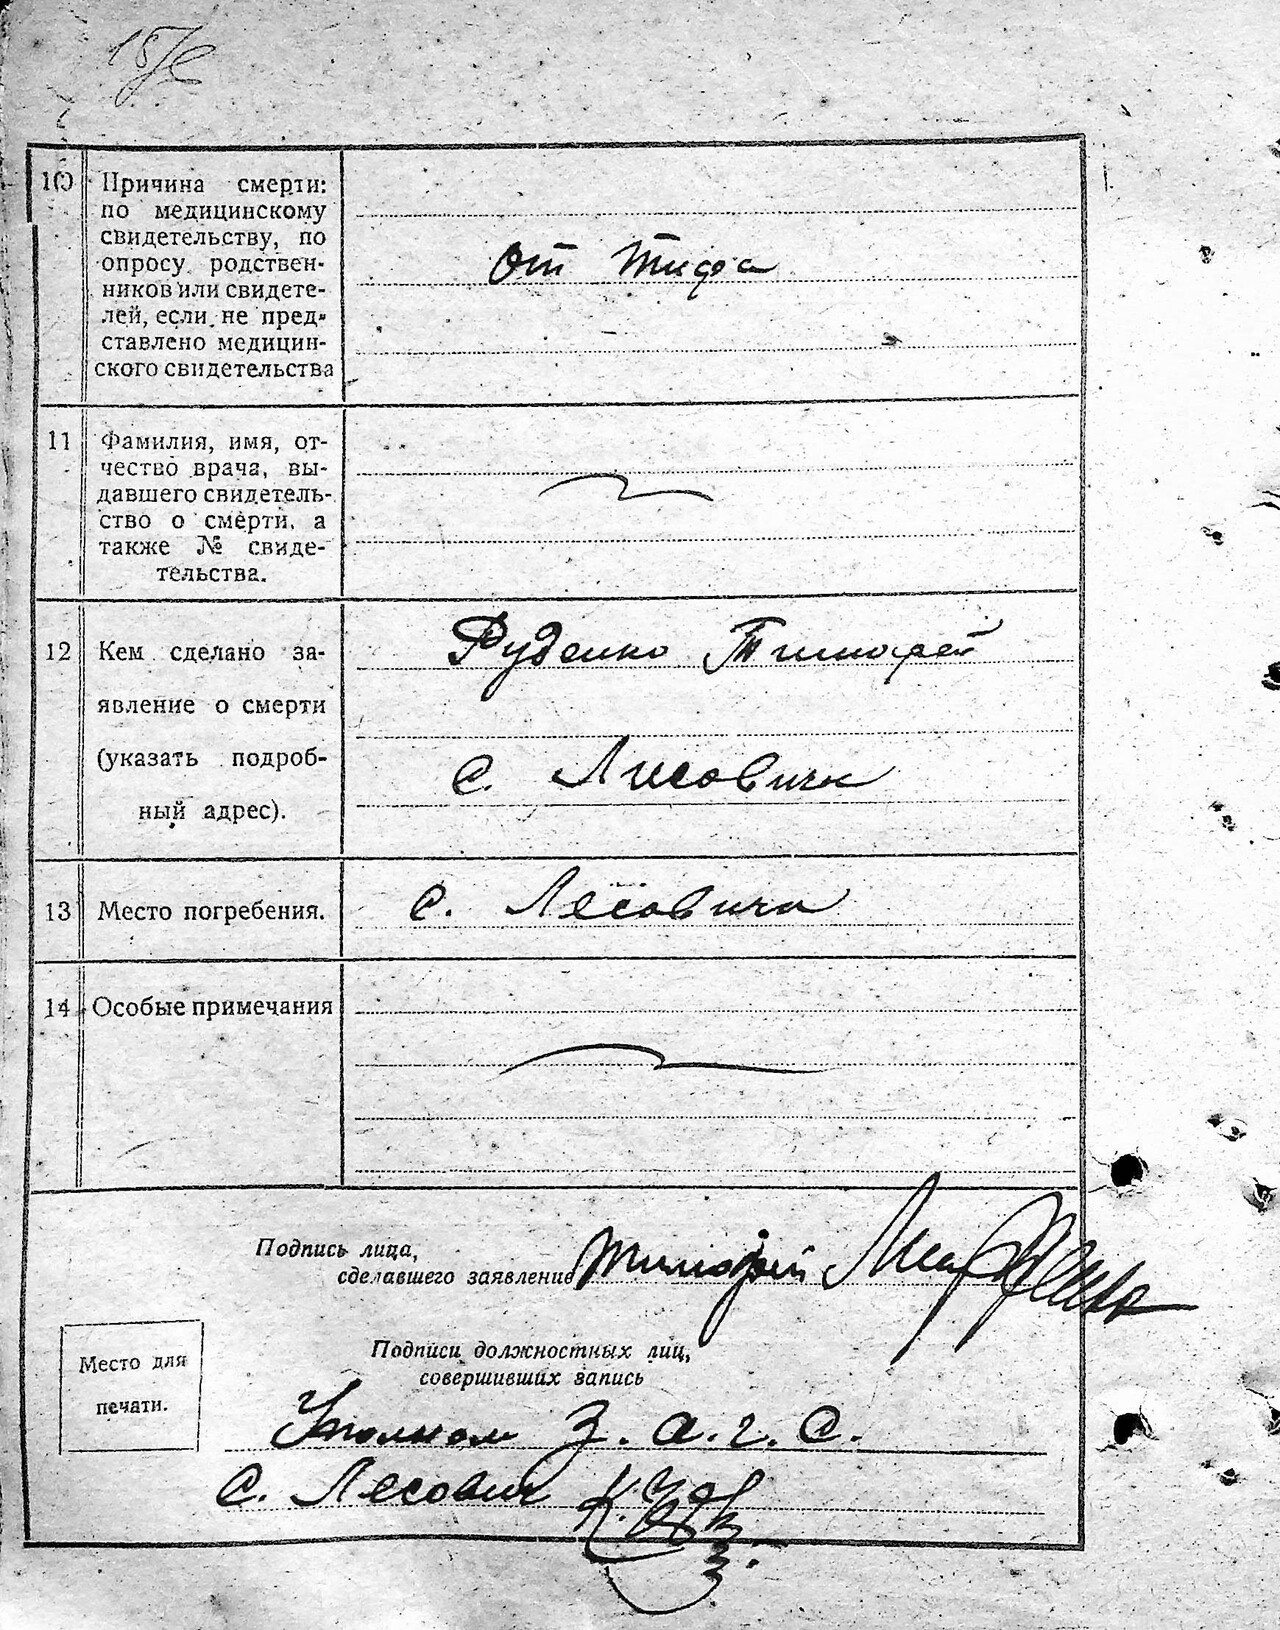 10
Причина смерти:
по медицинскому
свидетельству, по
опросу родствен-
ников или свидете-
лей, если не пред-
ставлено медицин-
ского свидетельства
от тифа
11
Фамилия, имя, от-
чество врача, вы-
давшего свидетель-
ство о смерти, а
также № свиде-
тельства.
12
Кем сделано за-
явление о смерти
(указать подроб-
ный адрес).
Руденко Тимофей
с. Лисовичи
13 Место погребения. с. Лесовичи
14 Особые примечания
Подпись лица,
сделавшего заявление Тимофей
Подписи должностных лиц,
совершивших запись
Место для
печати.
З. а. г. с.
с. Лесович